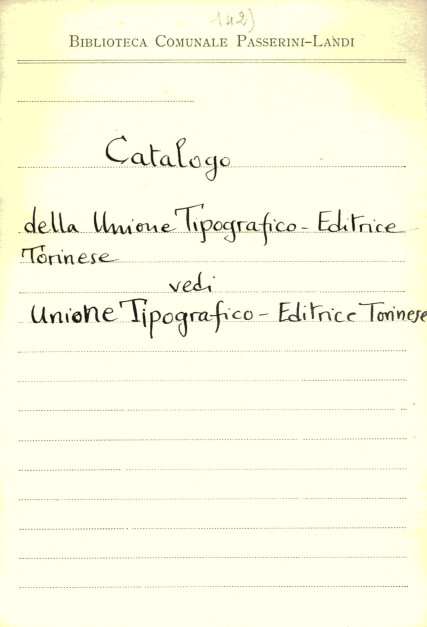 142)
BIBLIOTECA COMUNALE PASSERINI-LANDI
Catalogo
della Unione Tipografico - Editrice
Torinese
vedi
Unione Tipografico - Editrice Torinese